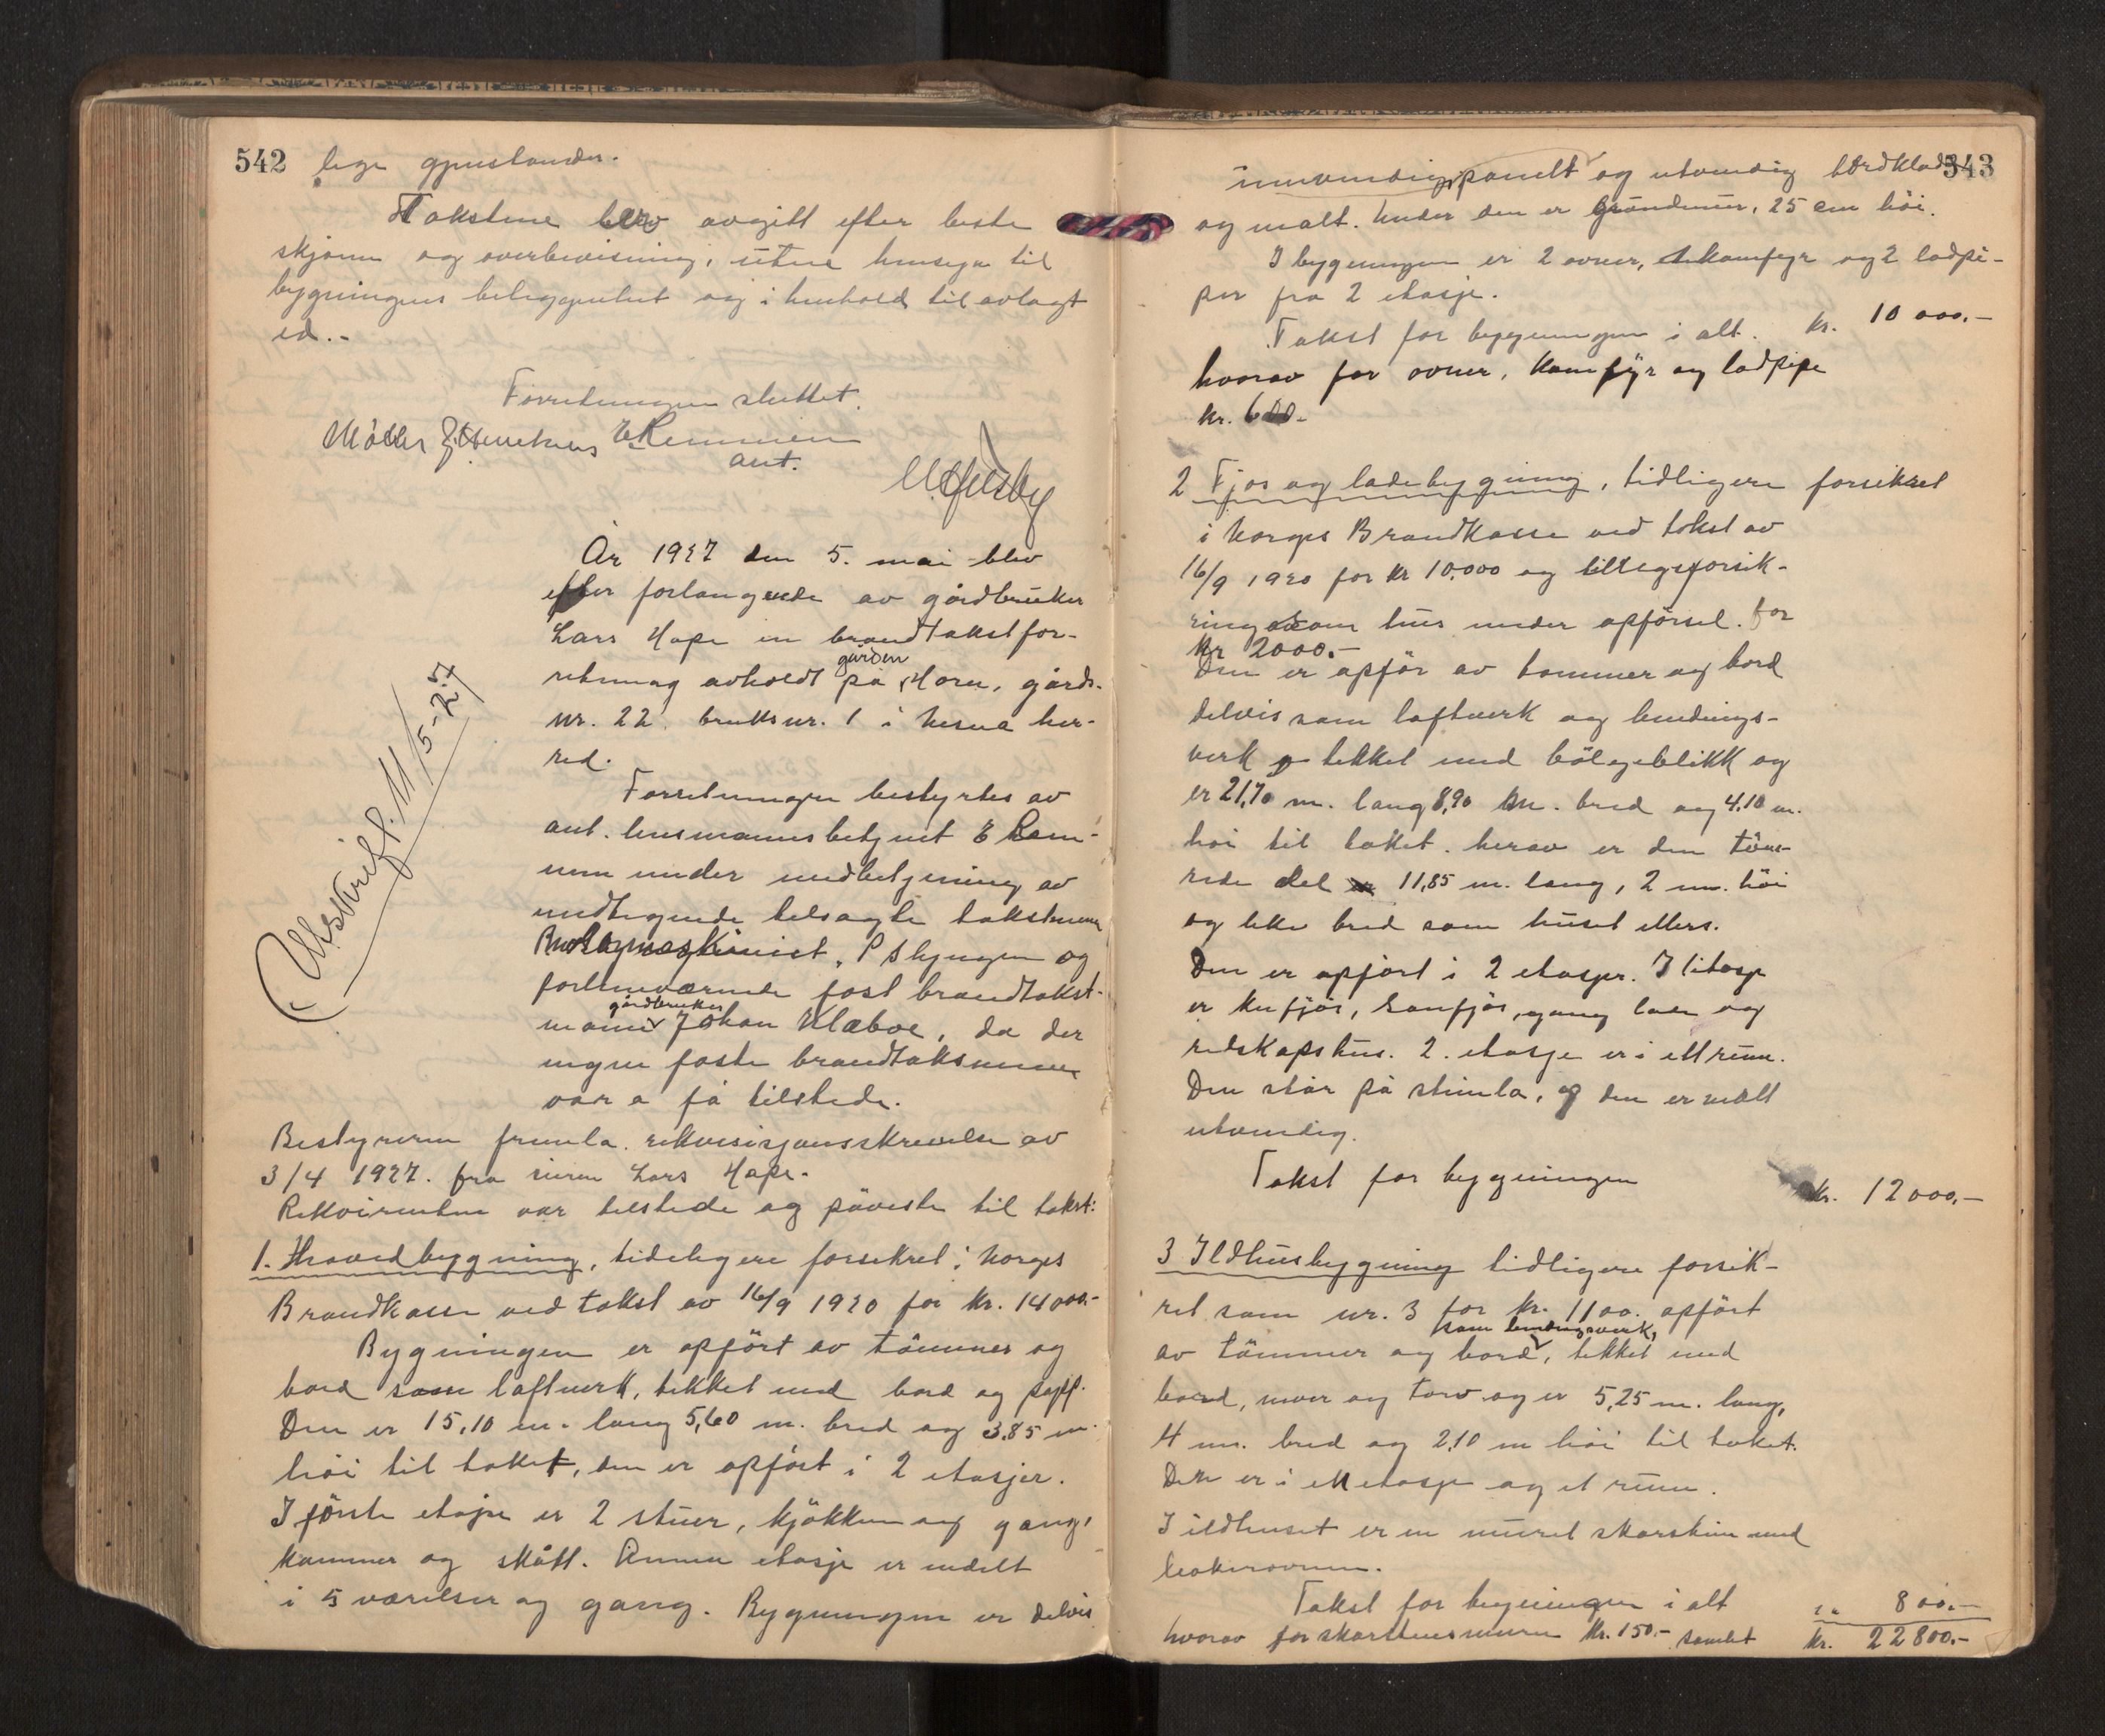 542
lige gjenstander.
Takstene blev avgitt efter beste
skjønn og overbevisning, uten hensyn til
bygningens beliggenhet og i henhold til avlagt
ed.-
Forretningen sluttet.
E Remmen
ant.
År 1927 den 5. mai blev
efter forlangende av gårdbruker
Lars Hope en brandtakstfor-
retning avholdt på gården Horn, gårds-
nr. 22, bruksnr. 1 i Nesna her-
red.
Utskrift. 11/5-27
Forretningen bestyrtes av
ant. lensmannsbetjent E Rem-
men under medbetjening av
undtegnede tilsagte takstmenn
P Slyngen og
forhenværende fast brandtakst-
mann gårdbruker Johan Klæboe, da der
ingen faste brandtaksmenn
var å få tilstede.
Bestyreren fremla rekvisisjonsskrivelse av
3/4 1927. fra eieren Lars Hope.
Rekvirenten var tilstede og påviste til takst:
1. Hovedbygning, tideligere forsikret i Norges
Brandkasse ved takst av 16/9 1920 for kr. 14000.-
Bygningen er opført av tømmer og
bord som laftverk, tekket med bord og papp.
Den er 15,10 m. lang 5,60 m. bred og 3,85 m.
høi til taket, den er opført i 2 etasjer.
I første etasje er 2 stuer, kjøkken og gang,
kammer og skått. Annen etasje er indelt
i 5 værelser og gang. Bygningen er delvis
543
innvendig panelt og utvendig bordkladd
og malt. Under den er grundmur, 25 cm høi.
I bygningen er 2 ovner, 1 komfyr og 2 ladpi-
per fra 2 etasje.
Takst for bygningen i alt. kr. 10 000.-
hvorav for ovner, komfyr og ladpipe
kr. 600.-
2 Fjøs og ladebygning, tidligere forsikret
i Norges Brandkasse ved takst av
16/9 1920 for kr 10.000 og tilleggsforsik-
ring som hus under opførsel. for
kr 2000.-
Den er opfør av tømmer og bord
delvis som laftverk og bindings-
verk tekket med bølgeblikk og
er 21,70 m. lang 8,90 m. bred og 4,10 m.
høi til taket. herav er den tøm-
rede del 11,85 m. lang, 2 m. høi
og like bred som huset ellers.
Den er opført i 2 etasjer. I 1 etasje
er kufjøs, saufjøs, gang lade og
redskapshus. 2. etasje er i ett rum.
Den står på stimla, og den er malt
utvendig.
Takst for bygningen kr. 12000.-
3 Ildhusbygning tidligere forsik-
ret som nr. 3 for kr. 1100. opført
av tømmer og bord som bindingsverk, tekket med
bord, never og torv og er 5,25 m. lang,
4 m. bred og 2,10 m høi til taket.
Den er i en etasje og et rum.
I ildhuset er en muret skorsten med
bakerovn.
Takst for bygningen i alt " 800.-
hvorav for skorstensmuren kr. 150.- samlet kr. 22800.-